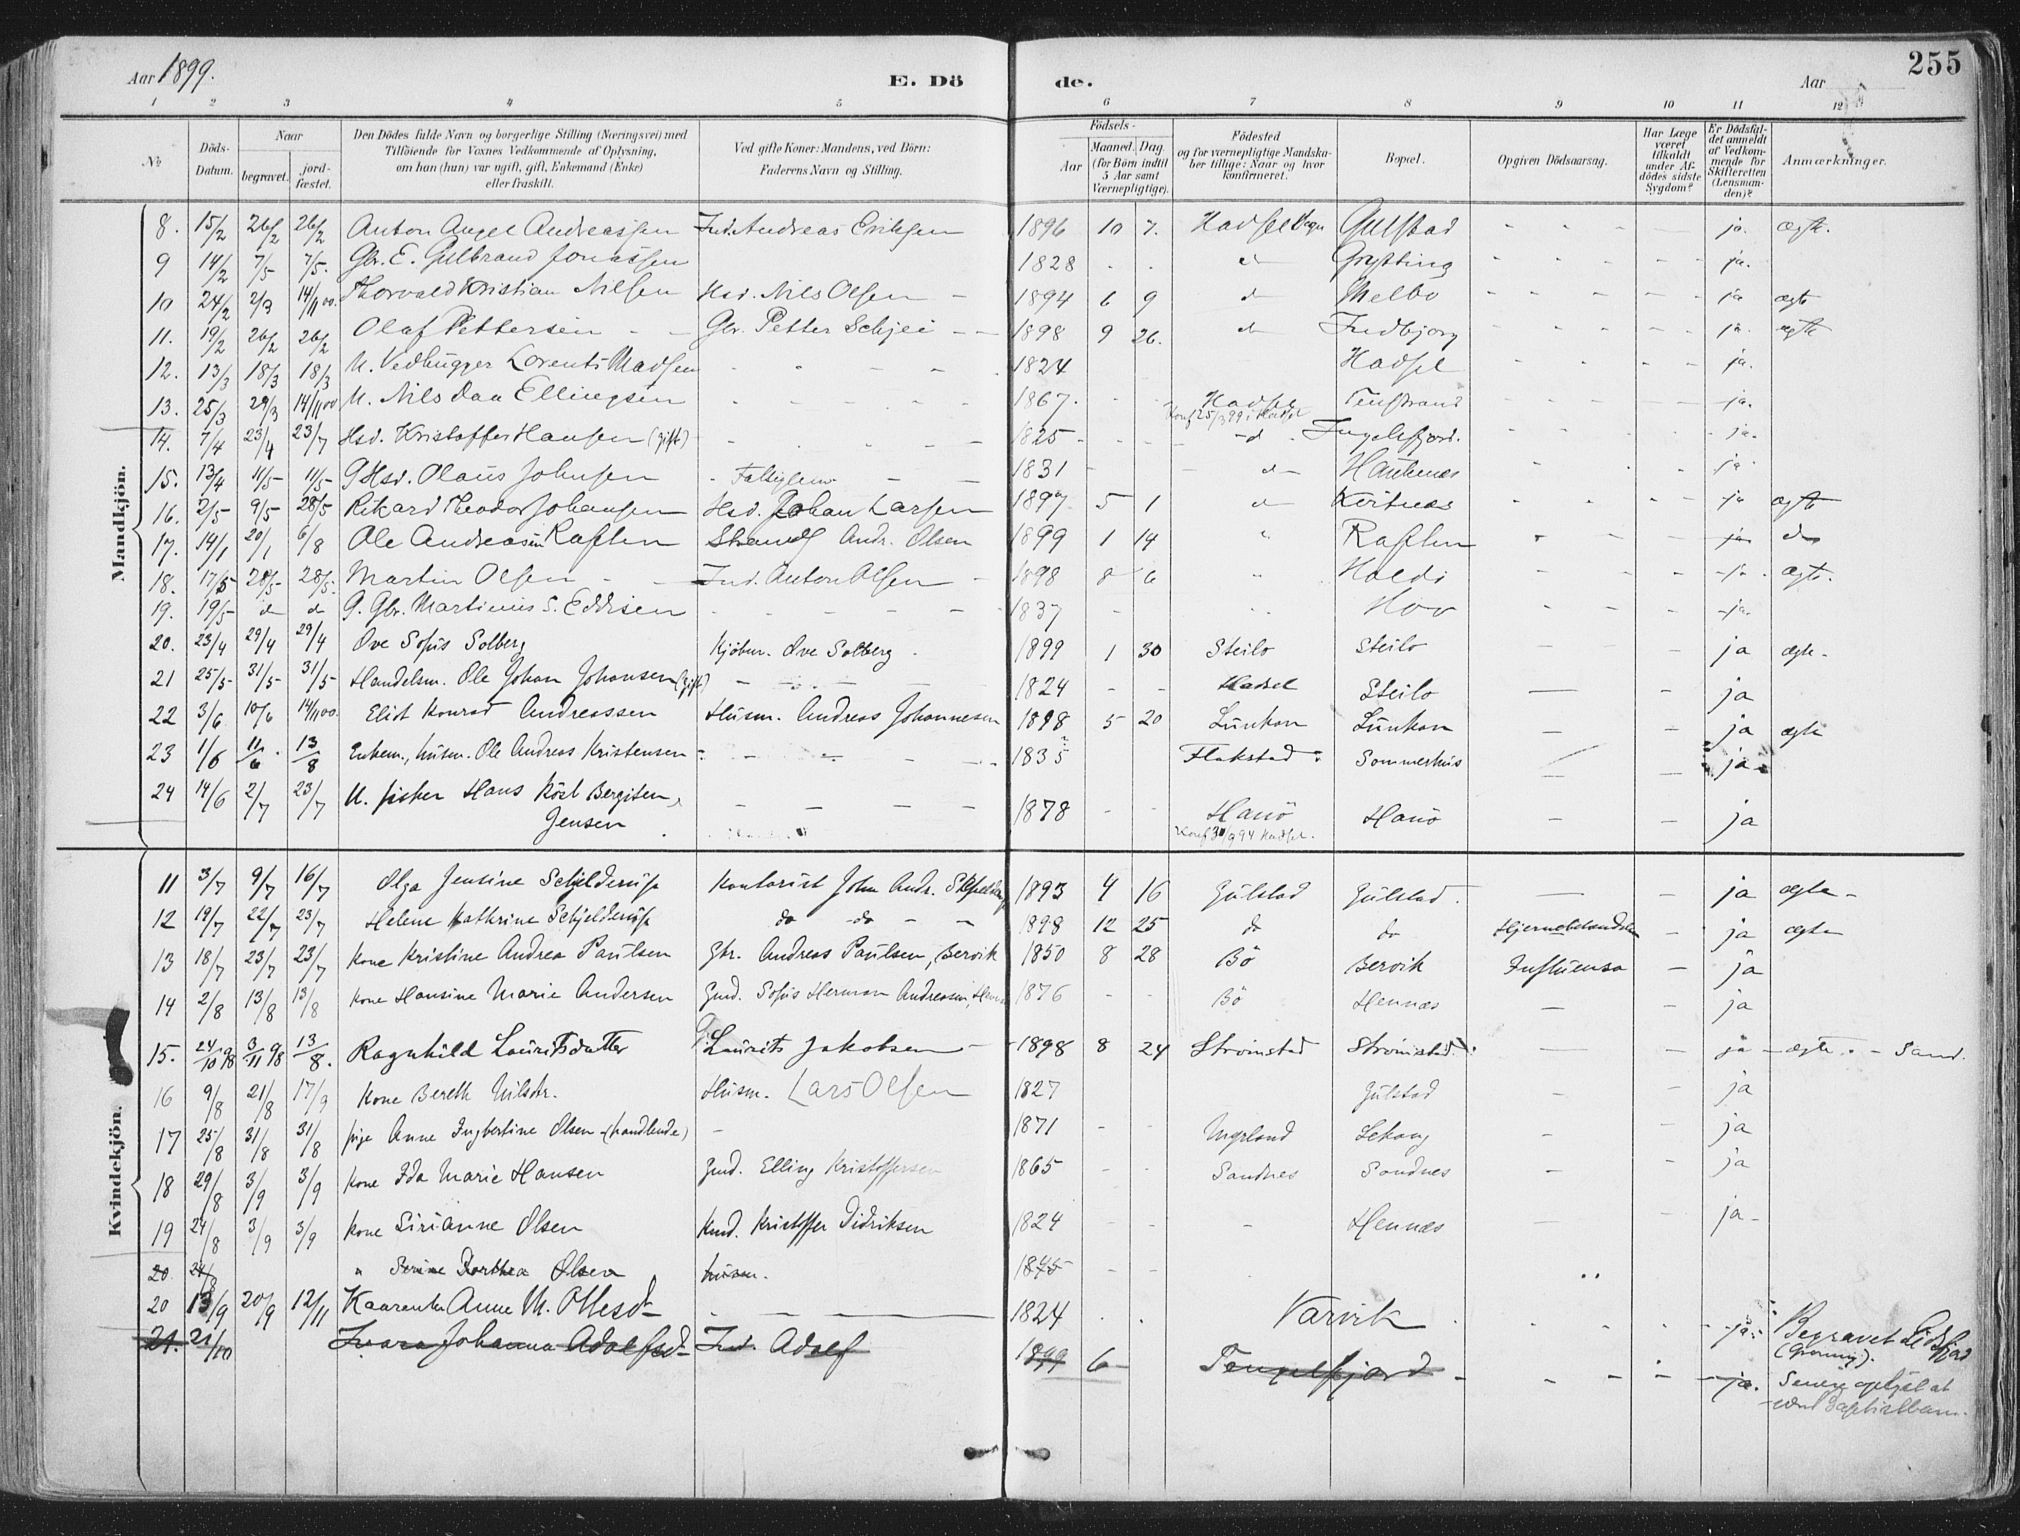 Aar 1899.
E. Dö
de.
Aar
255
1 2 3 4 5 6 7 8 9 10 11 12
№
Döds-Datum.
Naar
begravet.
jord-fæstet.
Den Dödes fulde Navn og borgerlige Stilling (Næringsvei) med
Tilföiende for Voxnes Vedkommende af Oplysning,
om han (hun) var ugift, gift, Enkemand (Enke)
eller fraskilt.
Ved gifte Koner: Mandens, ved Börn:
Faderens Navn og Stilling.
Födsels-
Aar
Maaned. Dag.
(for Börn indtil
5 Aar samt
Værnepligtige).
Födested
og for værnepligtige Mandska-
ber tillige: Naar og hvor
konfirmeret.
Bopæl.
Opgiven Dödsaarsag.
Har Læge
været
tilkaldt
under Af-
dödes sidste
Sygdom?
Er Dödsfal-
det anmeldt
af Vedkom-
mende for
Skifteretten
(Lensman-
den)?
Anmærkninger.
Mandkjön.
8. 15/2 26/2 26/2 Anton Angel Andreassen Ind. Andreas Eriksen 1896 10 7. Hadsel Gulstad ja. ægte.
9 14/2 7/5 7/5. Gbr. E. Gulbrand Jonassen 1828 d Grytting ja.
10 24/2 2/3 14/11 00. Thorvald Kristian Nilsen Hsd. Nils Olsen 1894 6 9 d Melbo ja ægte
11. 19/2 26/2 26/2 Olaf Pettersen Gbr. Petter Schjei 1898 9 26. d Indbjorg ja. ægte
12. 13/3 18/3 18/3 U. Vedhugger Lorents Madsen 1824 Hadsel ja.
13. 25/3 29/3 14/11 00 U. Nils Daa Ellingsen 1867. Hadsel ja.
14. 7/4 23/4 23/7 Hsd. Kristoffer Hansen (gift) 1825 d Ingelsfjord. ja.
15. 13/4 11/5 11/5 G Hsd. Olaus Johnsen 1831 d Haukenæs ja
16. 2/5 9/5 28/5 Rikard Theodor Johansen Hsd. Johan Larsen 1897 5 1 d ja ægte
17. 14/1 20/1 6/8 Ole Andreassen Raften Strands Andr. Olsen 1899 1 14 " Raften ja do
18. 17/5 28/5 28/5. Martin Olsen Ind. Anton Olsen 1898 8 6 " Holdi ja. ægte.
19. 19/5 d d G. Gbr. Martinus S. Eddisen 1837 Hov ja.
20. 23/4 29/4 29/4 Ove Sofus Solberg Kjöbm. Ove Solberg. 1899 1 30 Steilo Steilo ja ægte.
21 25/5 31/5 31/5 Handelsm. Ole Johan Johansen (gift) 1824 Hadsel Steilo ja
22 3/6 10/6 14/11 00. Eliot Konrad Andreassen Husm. Andreas Johannesen 1898 5 20 Lunkan Lunkan ja ægte
23 1/6 11/6 13/8 Enkem., husm. Ole Andreas Kristensen 1835 Flakstad Sommerhus ja
24 14/6 2/7 23/7 U. fisker Hans Köst Bergiton 1878 Hanö Hanö ja
Jensen Konf 30/9 94 Hadsel.
Kvindekjön.
11 3/7 9/7 16/7 Olga Jensine Schjelderup Kontorist John Andr. 1893 4 16 Gulstad Gulstad. ja ægte
12 19/7 22/7 23/7 Helene Kathrine Schjelderup do do 1898 12 25 do do ja ægte
13 18/7 23/7 23/7 Kone Kristine Andrea Paulsen Gbr. Andreas Paulsen, Bervik 1850 8 28 Bö Bervik Influensa ja
14 2/8 13/8 13/8 Kone Hansine Marie Andersen Ind. Sofus Herman Andreasen, 1876 Bö Hennæs ja
15. 24/10 98 3/11 98 13/8. Ragnhild Lauritsdatter Laurits Jakobsen 1898 8 24 Strömstad Strömstad. ja ægte. Sand.
16 9/8 21/8 17/9 Kone Bereth Nilsdtr. Husm. Lars Olsen 1827 Gulstad ja
17 25/8 31/8 31/8 pige Anne Ingbertine Olsen (handlende) 1871 Myrland Lekang ja
18 29/8 3/9 3/9 Kone Ida Marie Hansen Ind. Elling Kristoffersen 1865 Sandnes Sandnes ja
19 24/8 3/9 3/9 Kone Sirianne Olsen Kind. Kristoffer Didriksen 1824 Hennæs ja
20. 24/8 " Serine Dorthea Olsen husm. 1845
20 13/9 20/9 12/11 Kaarenke Anne M. Ottesd. 1824 Varvik ja. Begravet
21. 21/10 Johanna Adolfsd. Ind. Adolf 1899 6 Tengelfjord ja. Senere oplyst at